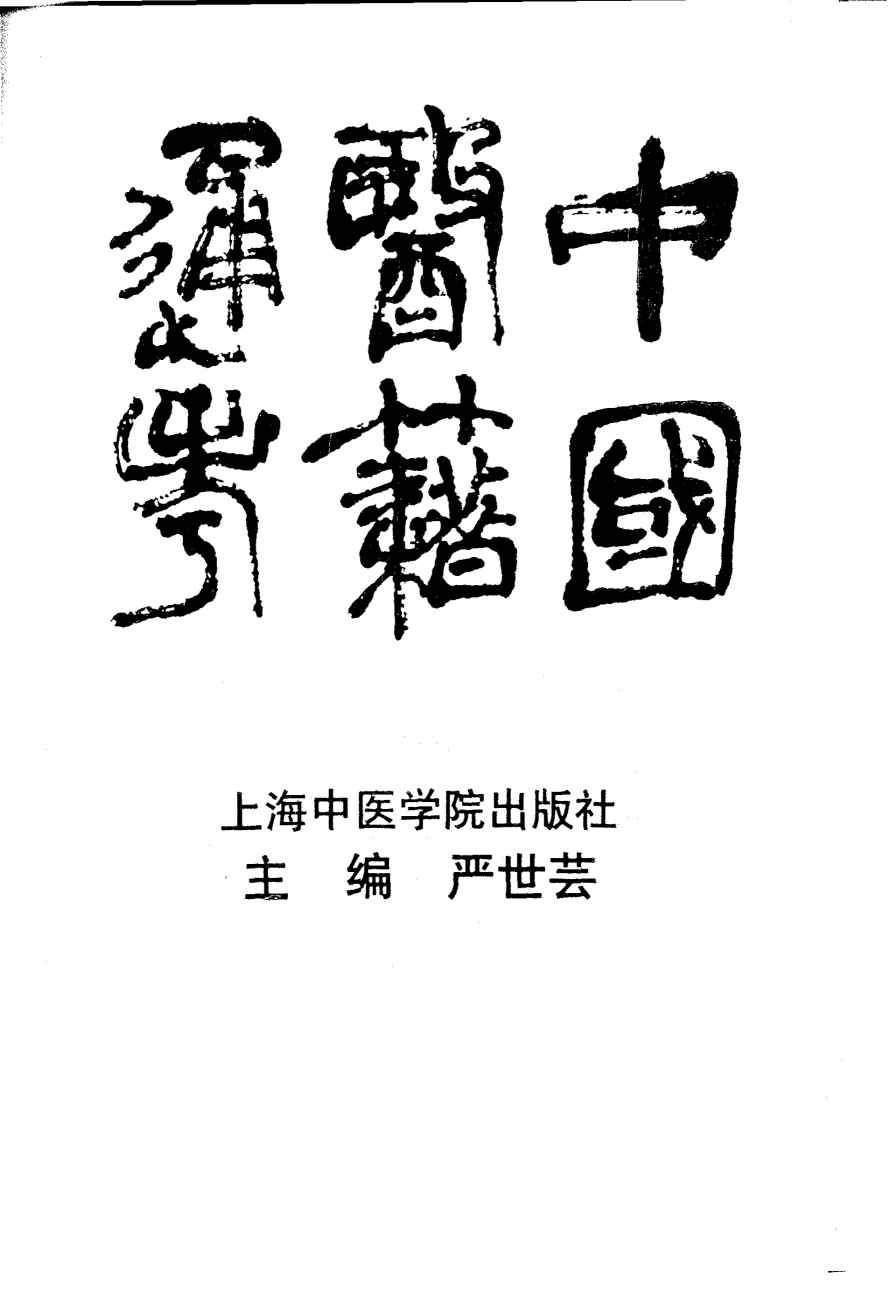 中國
醫籍
通考
上海中医学院出版社
主 编 严世芸